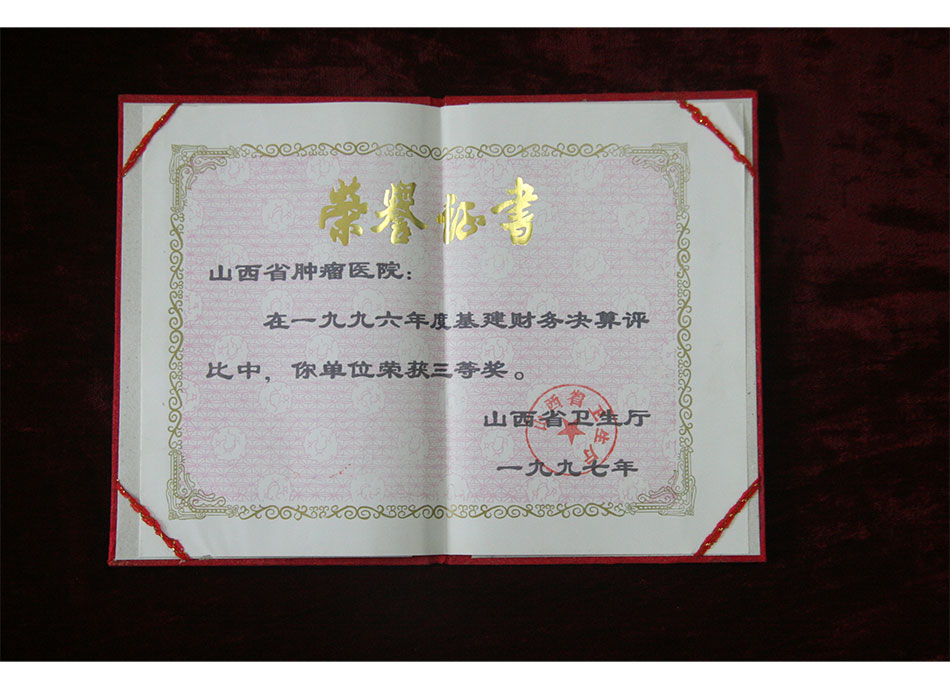 荣誉证书
山西省肿瘤医院：
在一九九六年度基建财务决算评
比中，你单位荣获三等奖。
山西省卫生厅
一九九七年
山西省卫生厅